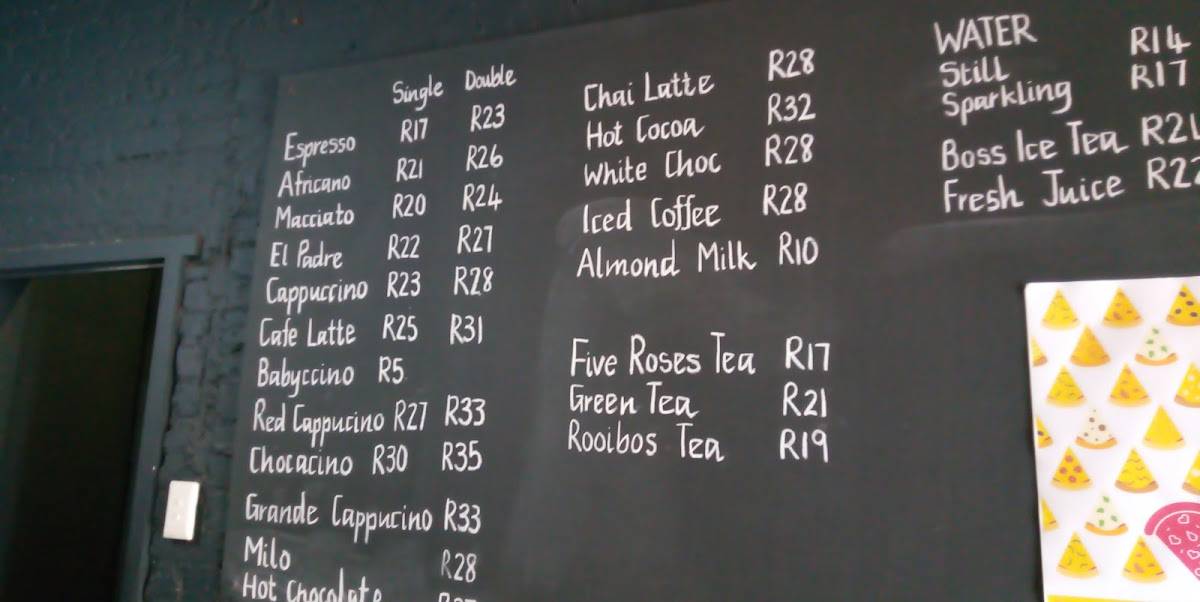 Single Double
Espresso R17 R23
Africano R21 R26
Macciato R20 R24
El Padre R22 R27
Cappuccino R23 R28
Cafe Latte R25 R31
Babyccino R5
Red Cappucino R27 R33
Chocacino R30 R35
Grande Cappucino R33
Milo R28
Hot Chocolate
Chai Latte R28
Hot Cocoa R32
White Choc R28
Iced Coffee R28
Almond Milk R10
Five Roses Tea R17
Green Tea R21
Rooibos Tea R19
WATER
Still R14
Sparkling R17
Boss Ice Tea R21
Fresh Juice R22